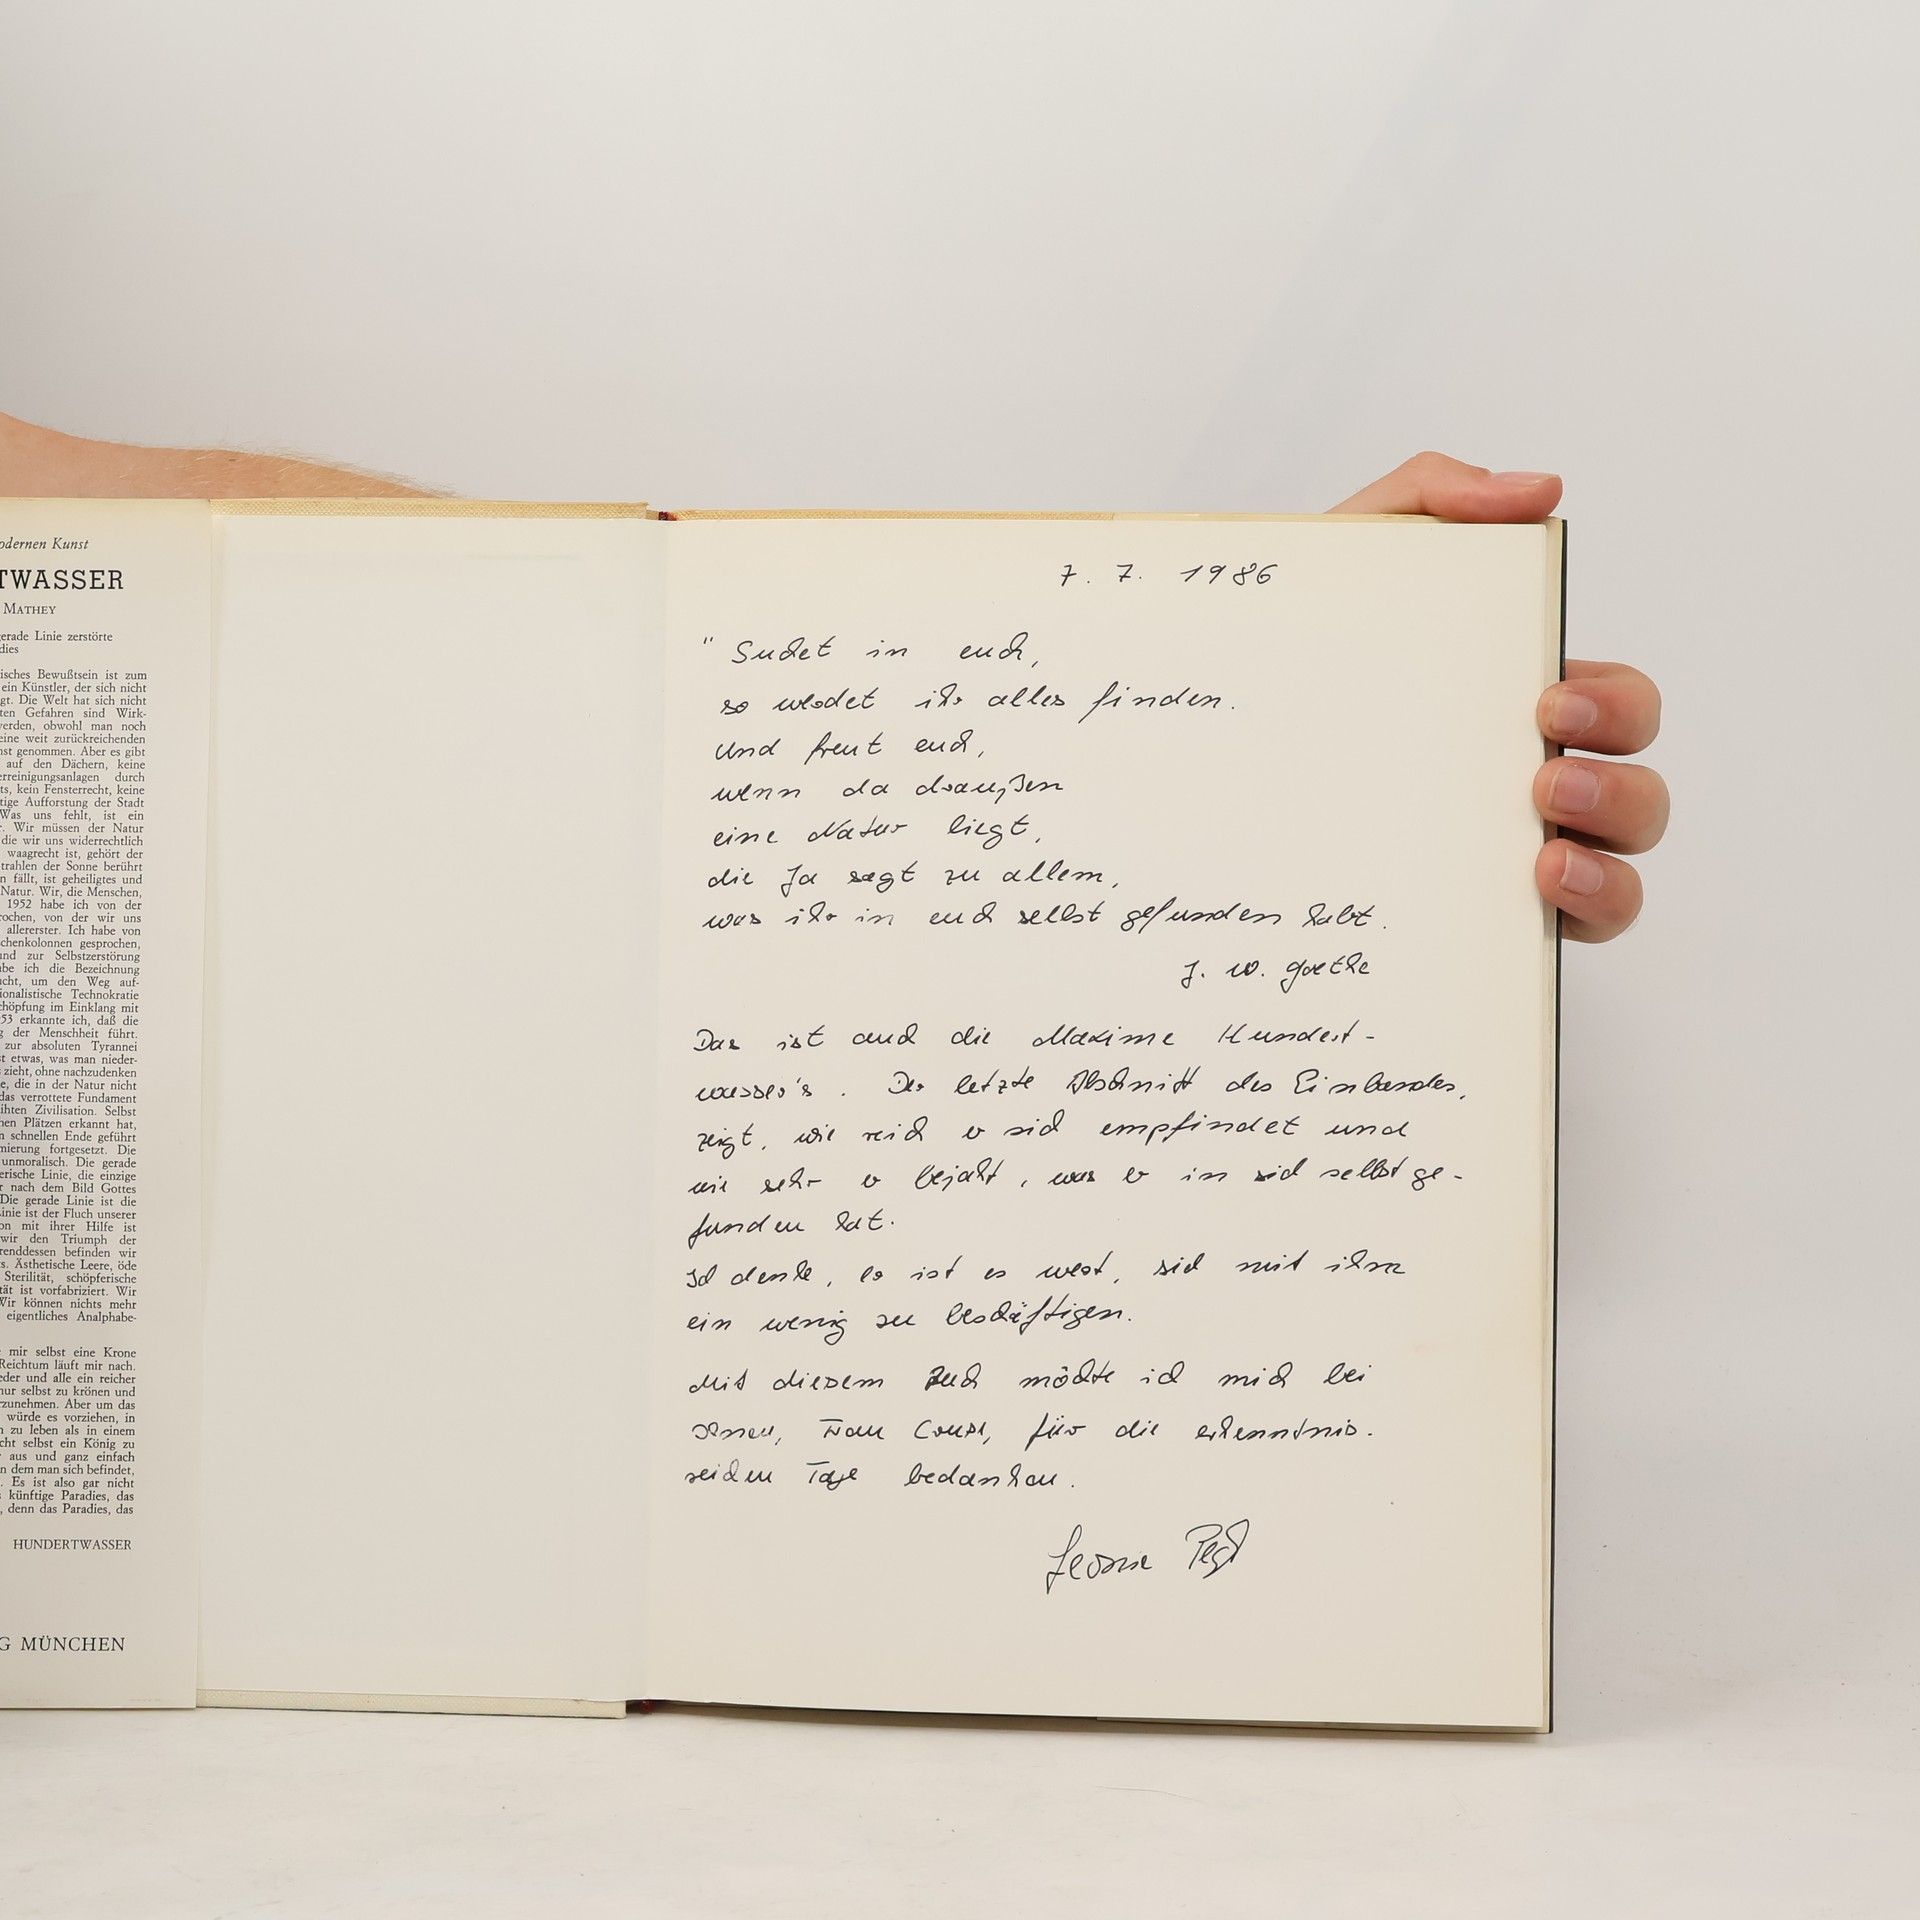 odernen Kunst
TWASSER
MATHEY
erade Linie zerstörte
dies
isches Bewußtsein ist zum
ein Künstler, der sich nicht
gt. Die Welt hat sich nicht
ten Gefahren sind Wirk-
verden, obwohl man noch
eine weit zurückreichenden
nst genommen. Aber es gibt
auf den Dächern, keine
erreinigungsanlagen durch
ts, kein Fensterrecht, keine
tige Aufforstung der Stadt
Was uns fehlt, ist ein
r. Wir müssen der Natur
die wir uns widerrechtlich
waagrecht ist, gehört der
trahlen der Sonne berührt
n fällt, ist geheiligtes und
Natur. Wir, die Menschen,
1952 habe ich von der
rochen, von der wir uns
allererster. Ich habe von
chenkolonnen gesprochen,
und zur Selbstzerstörung
abe ich die Bezeichnung
ucht, um den Weg auf-
ionalistische Technokratie
chöpfung im Einklang mit
53 erkannte ich, daß die
g der Menschheit führt.
zur absoluten Tyrannei
st etwas, was man nieder-
zieht, ohne nachzudenken
e, die in der Natur nicht
das verrottete Fundament
ihten Zivilisation. Selbst
nen Plätzen erkannt hat,
n schnellen Ende geführt
mierung fortgesetzt. Die
unmoralisch. Die gerade
erische Linie, die einzige
r nach dem Bild Gottes
Die gerade Linie ist die
Linie ist der Fluch unserer
on mit ihrer Hilfe ist
wir den Triumph der
renddessen befinden wir
s. Ästhetische Leere, öde
Sterilität, schöpferische
tät ist vorfabriziert. Wir
Wir können nichts mehr
eigentliches Analphabe-
e mir selbst eine Krone
Reichtum läuft mir nach.
eder und alle ein reicher
nur selbst zu krönen und
rzunehmen. Aber um das
würde es vorziehen, in
n zu leben als in einem
cht selbst ein König zu
aus und ganz einfach
n dem man sich befindet,
Es ist also gar nicht
künftige Paradies, das
, denn das Paradies, das
HUNDERTWASSER
G MÜNCHEN
7. 7. 1986
" Suchet in euch,
so werdet ihr alles finden.
Und freut euch,
wenn da draußen
eine Natur liegt,
die Ja sagt zu allem,
was ihr in euch selbst gefunden habt.
J. W. Goethe
Das ist auch die Maxime Hundert-
wasser's. Der letzte Abschnitt des Einbandes,
zeigt, wie reich er sich empfindet und
wie sehr er bejaht, was er in sich selbst ge-
funden hat.
Ich denke, es ist es wert, sich mit ihm
ein wenig zu beschäftigen.
Mit diesem Buch möchte ich mich bei
Ihnen, Frau für die erkenntnis-
reichen Tage bedanken.
Leonie